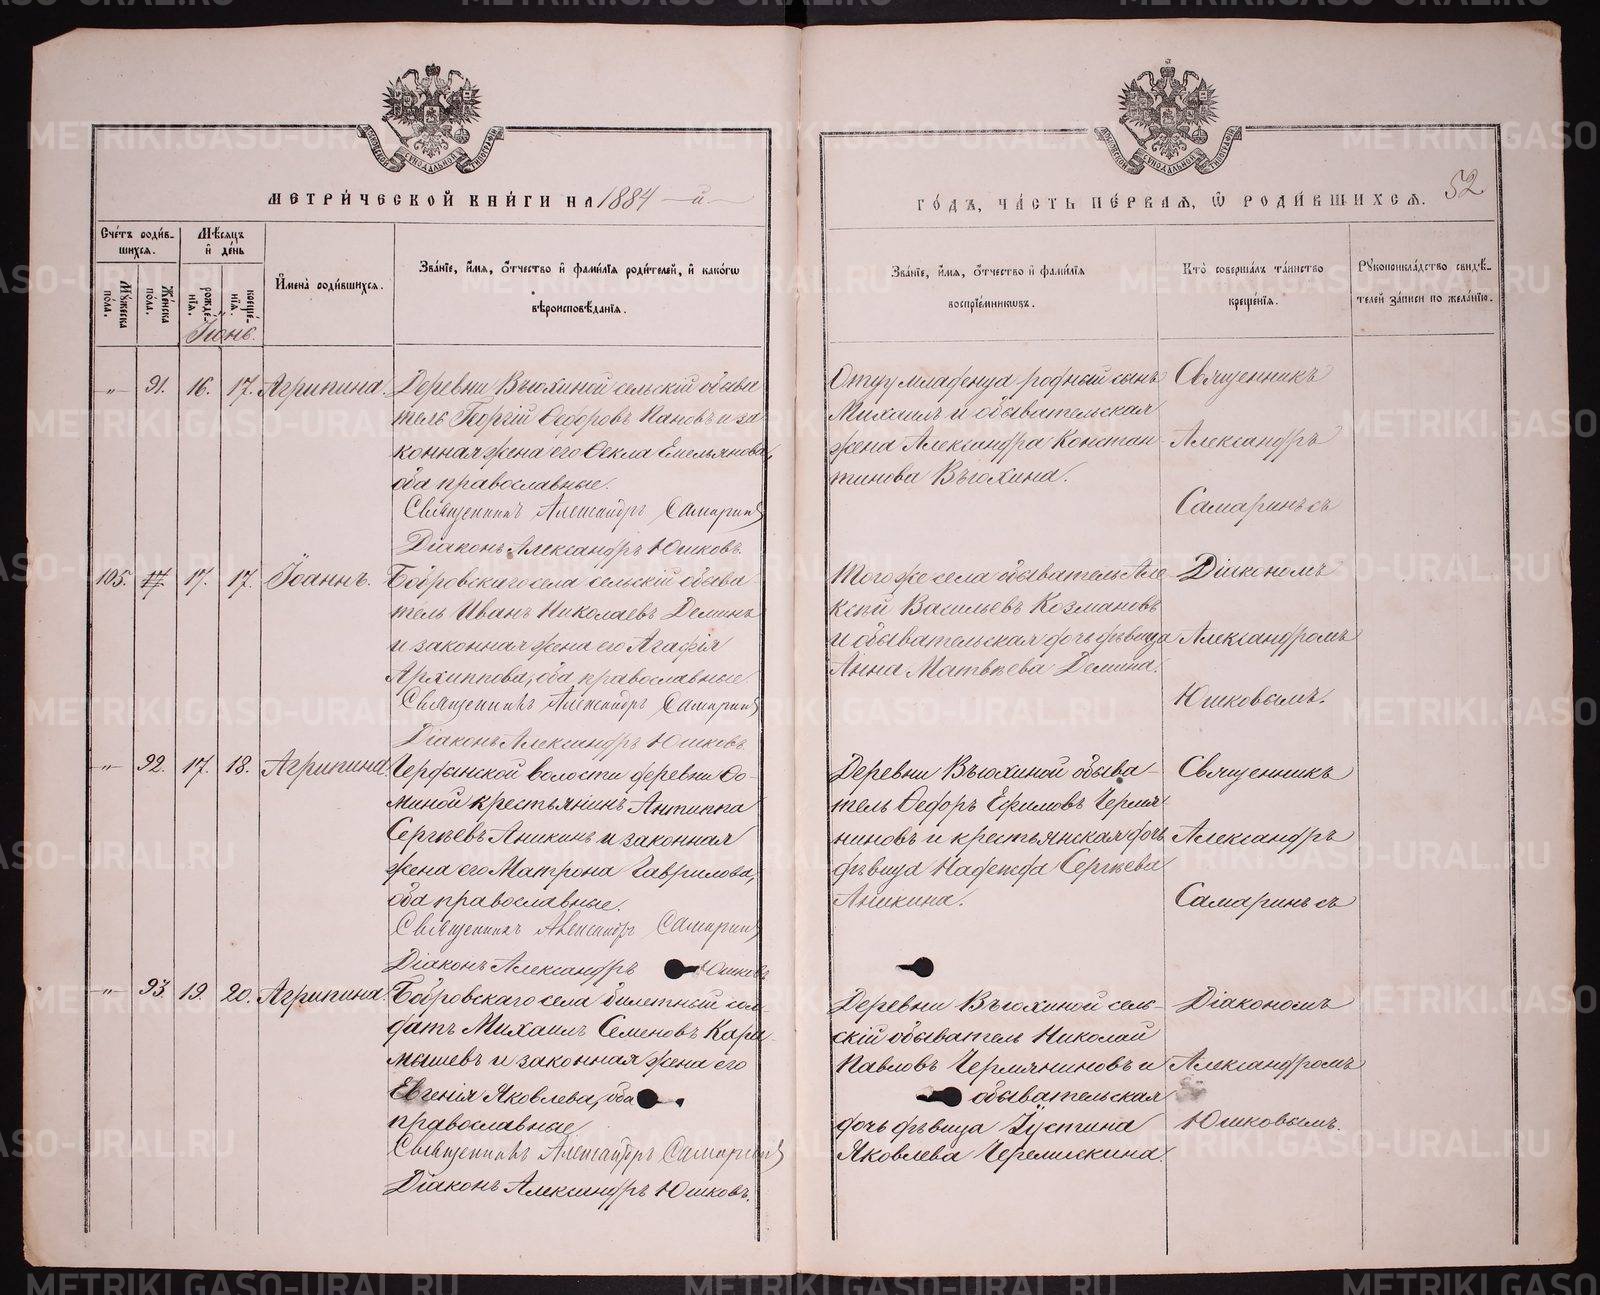 МЕТРИ́ЧЕСКОЙ КНИ́ГИ НА 1884 -й-
ГО́ДЪ, ЧА́СТЬ ПЕ́РВАЯ, Ѿ РОДИ́ВШИХСЯ.
52
Сче́тъ роди́в-
шихся.
Мѣ́сяцъ
и̂ де́нь
Мꙋжеска
пола.
Же́нска
по́ла.
рожде́-
нїя.
креще́-
нїя.
И҆мена̀ роди́вшихся.
Зва́нїе, и҆́мя, о҆́тчество и҆ фами́лїя роди́телей, и҆ како́гѡ
вѣроисповѣ́данїя.
Зва́нїе, и҆́мя, о҆́тчество и҆ фами́лїя
воспрїе́мниковъ.
Кто̀ соверша́лъ та́инство
креще́нїя.
Рꙋкоприкла́дство свидѣ́-
телей за́писи по жела́нїю.
Іюнь.
-"- 91. 16. 17. Агрипина.
Деревни Вьюхиной сельскій обыва
тель Георгій Ѳедоровъ Пановъ и за
конная жена его Ѳекла Емельянова,
оба православные.
Священникъ Александръ Самаринъ
Діаконъ Александръ Юшковъ.
Отцу младенца родный сынъ
Михаилъ и обывательская
жена Александра Констан-
тинова Вьюхина.
Священникъ
Александръ
Самаринъ съ
105. 17. 17. 17. Іоаннъ.
Бобровскаго села сельскій обыва
тель Иванъ Николаевъ Деминъ
и законная жена его Агафія
Архиппова, оба православные.
Священникъ Александръ Самаринъ
Діаконъ Александръ Юшковъ.
Того же села обыватель Але
ксѣй Васильевъ Козмановъ
и обывательская дочь дѣвица
Анна Матвѣева Демина.
Діакономъ
Александромъ
Юшковымъ.
-"- 92. 17. 18. Агрипина.
Чердынской волости деревни Ѳо-
миной крестьянинъ Антиппа
Сергѣевъ Аникинъ и законная
жена его Матрона Гаврилова,
оба православные.
Священникъ Александръ Самаринъ
Діаконъ Александръ Юшковъ
Деревни Вьюхиной обыва-
тель Ѳедоръ Ефимовъ Чермя-
ниновъ и крестьянская дочь
дѣвица Надежда Сергѣева
Аникина.
Священникъ
Александръ
Самаринъ съ
-"- 93. 19. 20. Агрипина.
Бобровскаго села билетный сол-
датъ Михаилъ Семеновъ Кара-
мышевъ и законная жена его
Евгенія Яковлева, оба
православные
Священникъ Александръ Самаринъ
Діаконъ Александръ Юшковъ.
Деревни Вьюхиной сель-
скій обыватель Николай
Павловъ Чермяниновъ и
обывательская
дочь дѣвица Іустина
Яковлева Черемискина.
Діакономъ
Александромъ
Юшковымъ.
METRIKI.GASO-URAL.RU